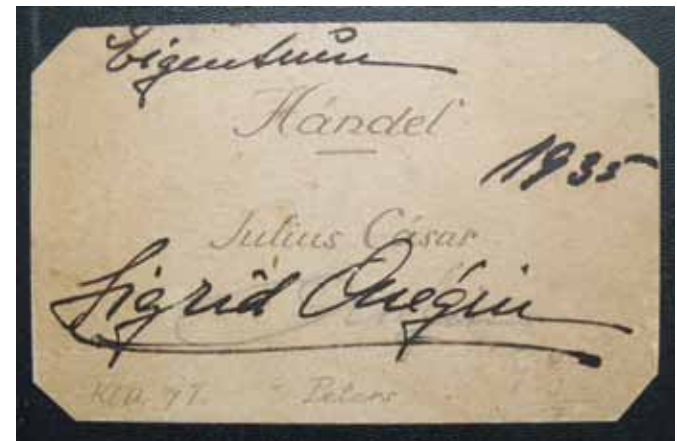 Eigentum
Händel
1935
Julius Cäsar
Sigrid Onégin
Peters